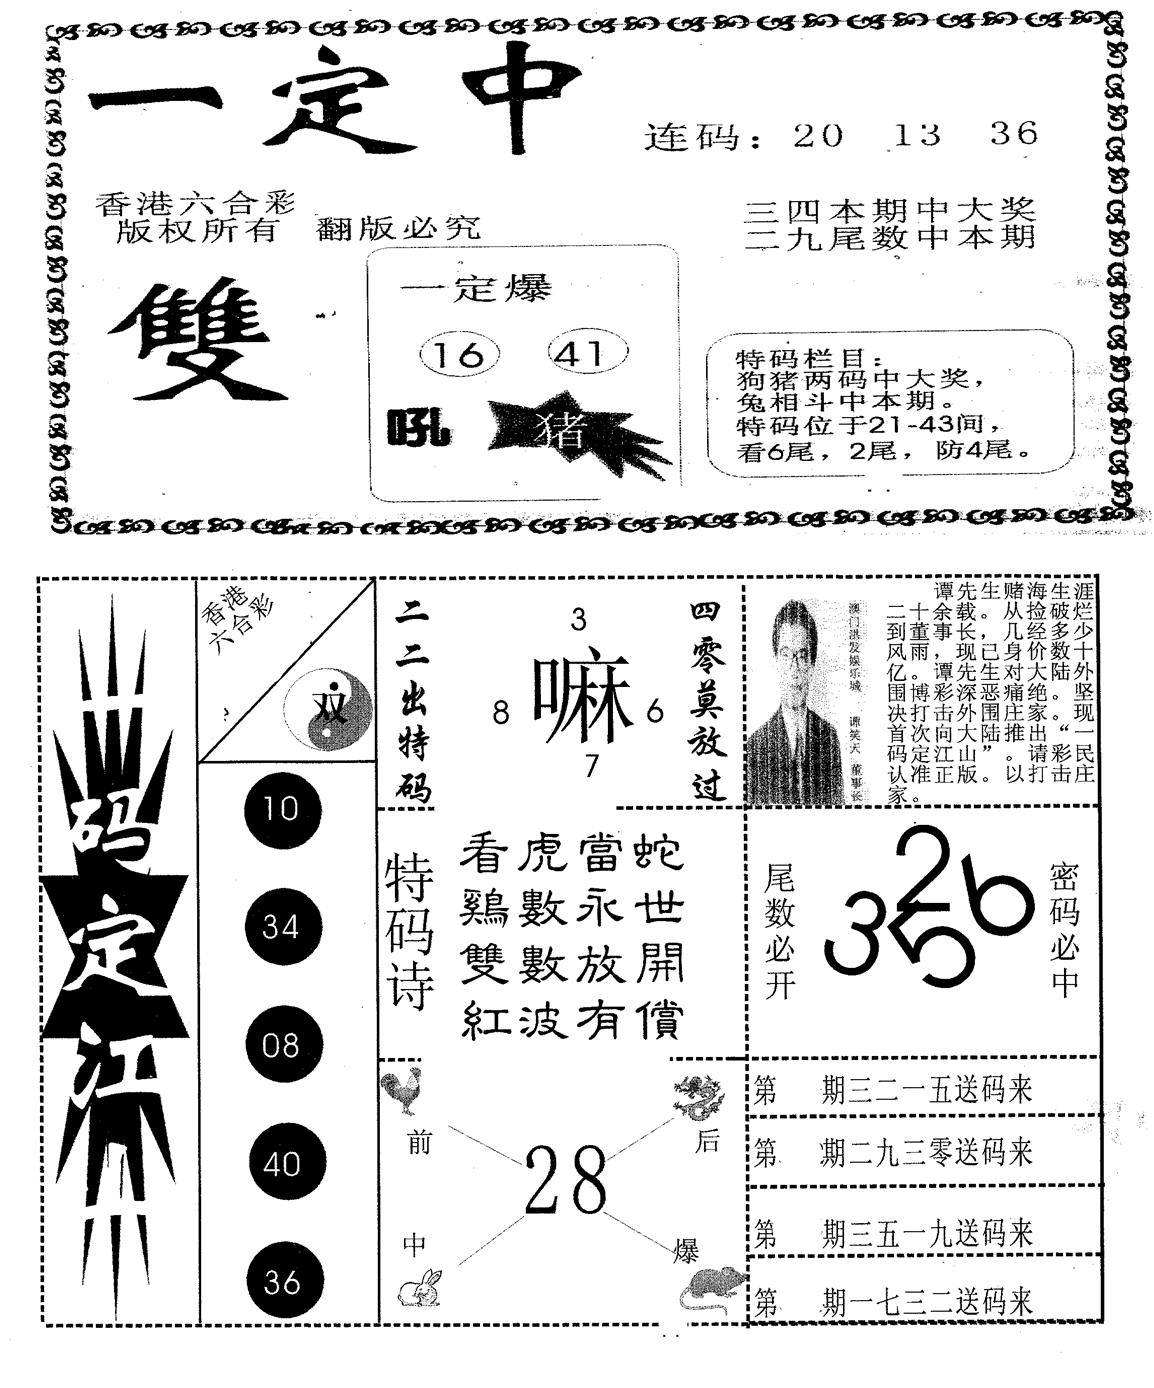 一定中
连码：20 13 36
香港六合彩
版权所有 翻版必究
三四本期中大奖
二九尾数中本期
雙
一定爆
16 41
吼 猪
特码栏目：
狗猪两码中大奖，
兔相斗中本期。
特码位于21-43间，
看6尾，2尾，防4尾。
一码定江山
香港
六合彩
双
10
34
08
40
36
二二出特码
3
8 嘛 6
7
四零莫放过
澳门洪发娱乐城 谭笑天 董事长
谭先生赌海生涯
二十余载。从捡破烂
到董事长，几经多少
风雨，现已身价数十
亿。谭先生对大陆外
围博彩深恶痛绝。坚
决打击外围庄家。现
首次向大陆推出“一
码定江山”。请彩民
认准正版。以打击庄
家。
特码诗
看虎當蛇
鷄數永世
雙數放開
紅波有償
尾数必开
2
3 5 6
密码必中
前 后
28
中 爆
第 期三二一五送码来
第 期二九三零送码来
第 期三五一九送码来
第 期一七三二送码来